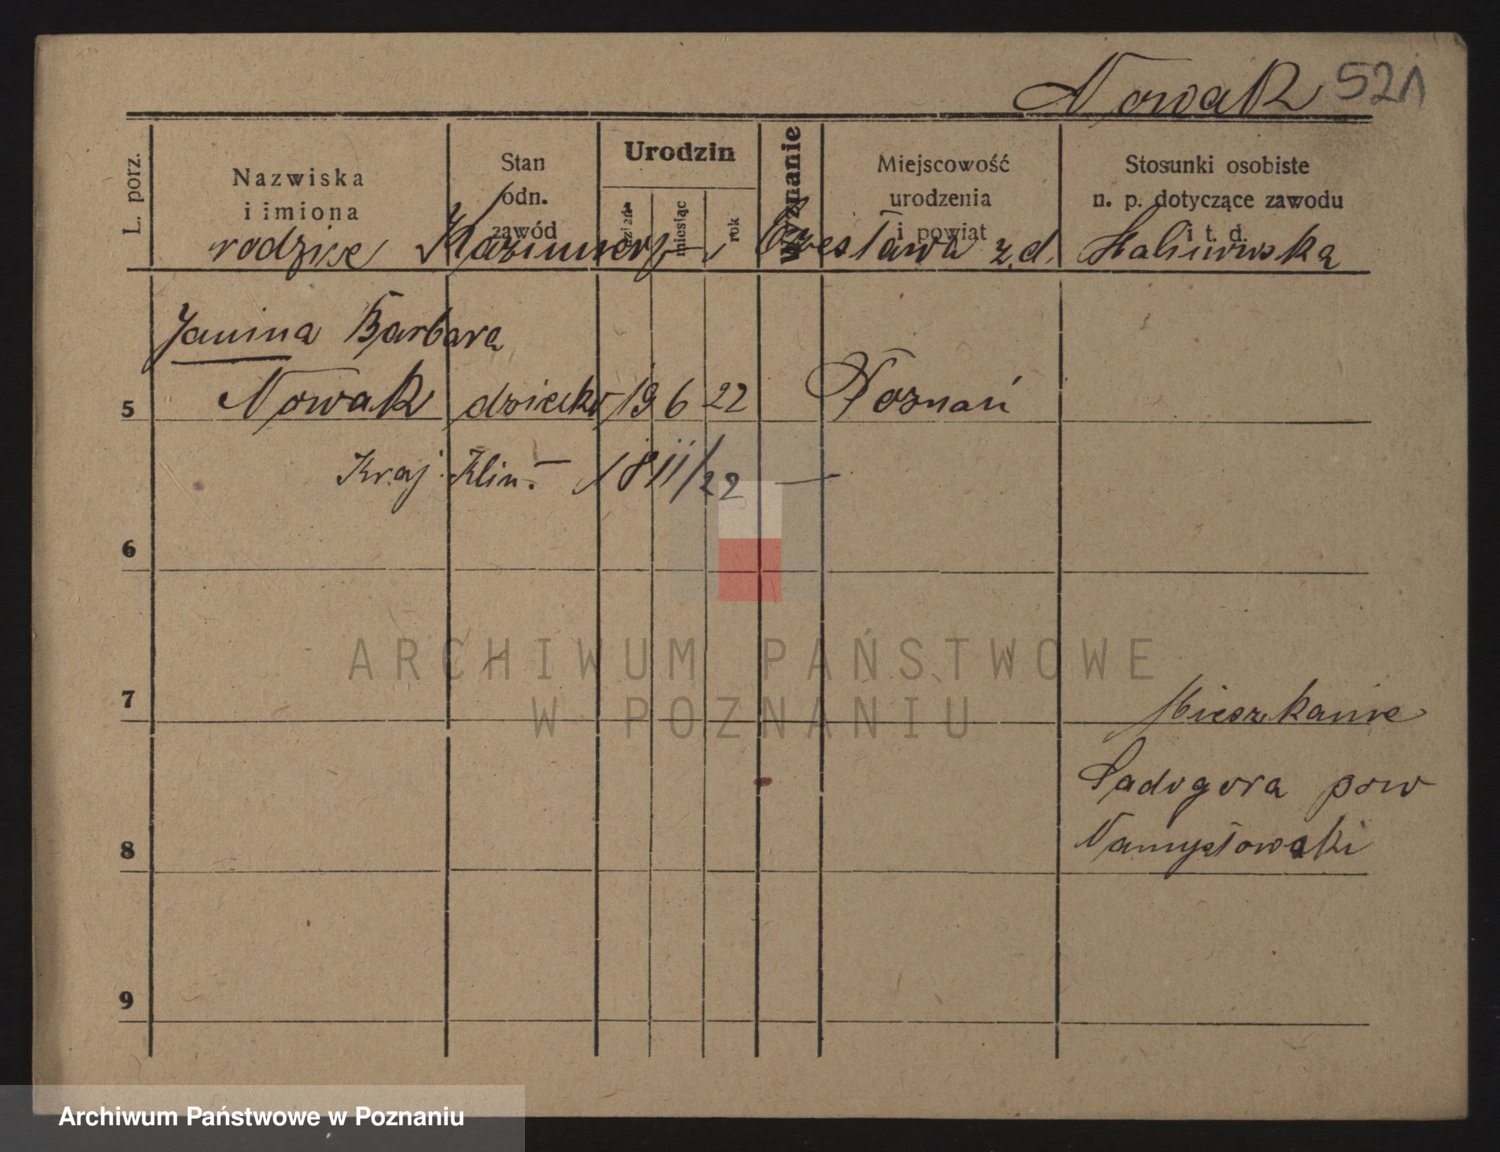 Nowak 521
L. porz.
Nazwiska
i imiona
Stan
odn.
zawód
Urodzin
dzień
miesiąc
rok
Wyznanie
Miejscowość
urodzenia
i powiat
Stosunki osobiste
n. p. dotyczące zawodu
i t. d.
rodzice Kazimierz i Czesława z d.
Janina Barbara
5 Nowak dziecko 19 6 22 Poznań
Kraj. Klin. — 18 II/22 —
6
7 Mieszkanie
Sadogora pow
8 Namysłowski
9
ARCHIWUM PAŃSTWOWE
W POZNANIU
Archiwum Państwowe w Poznaniu